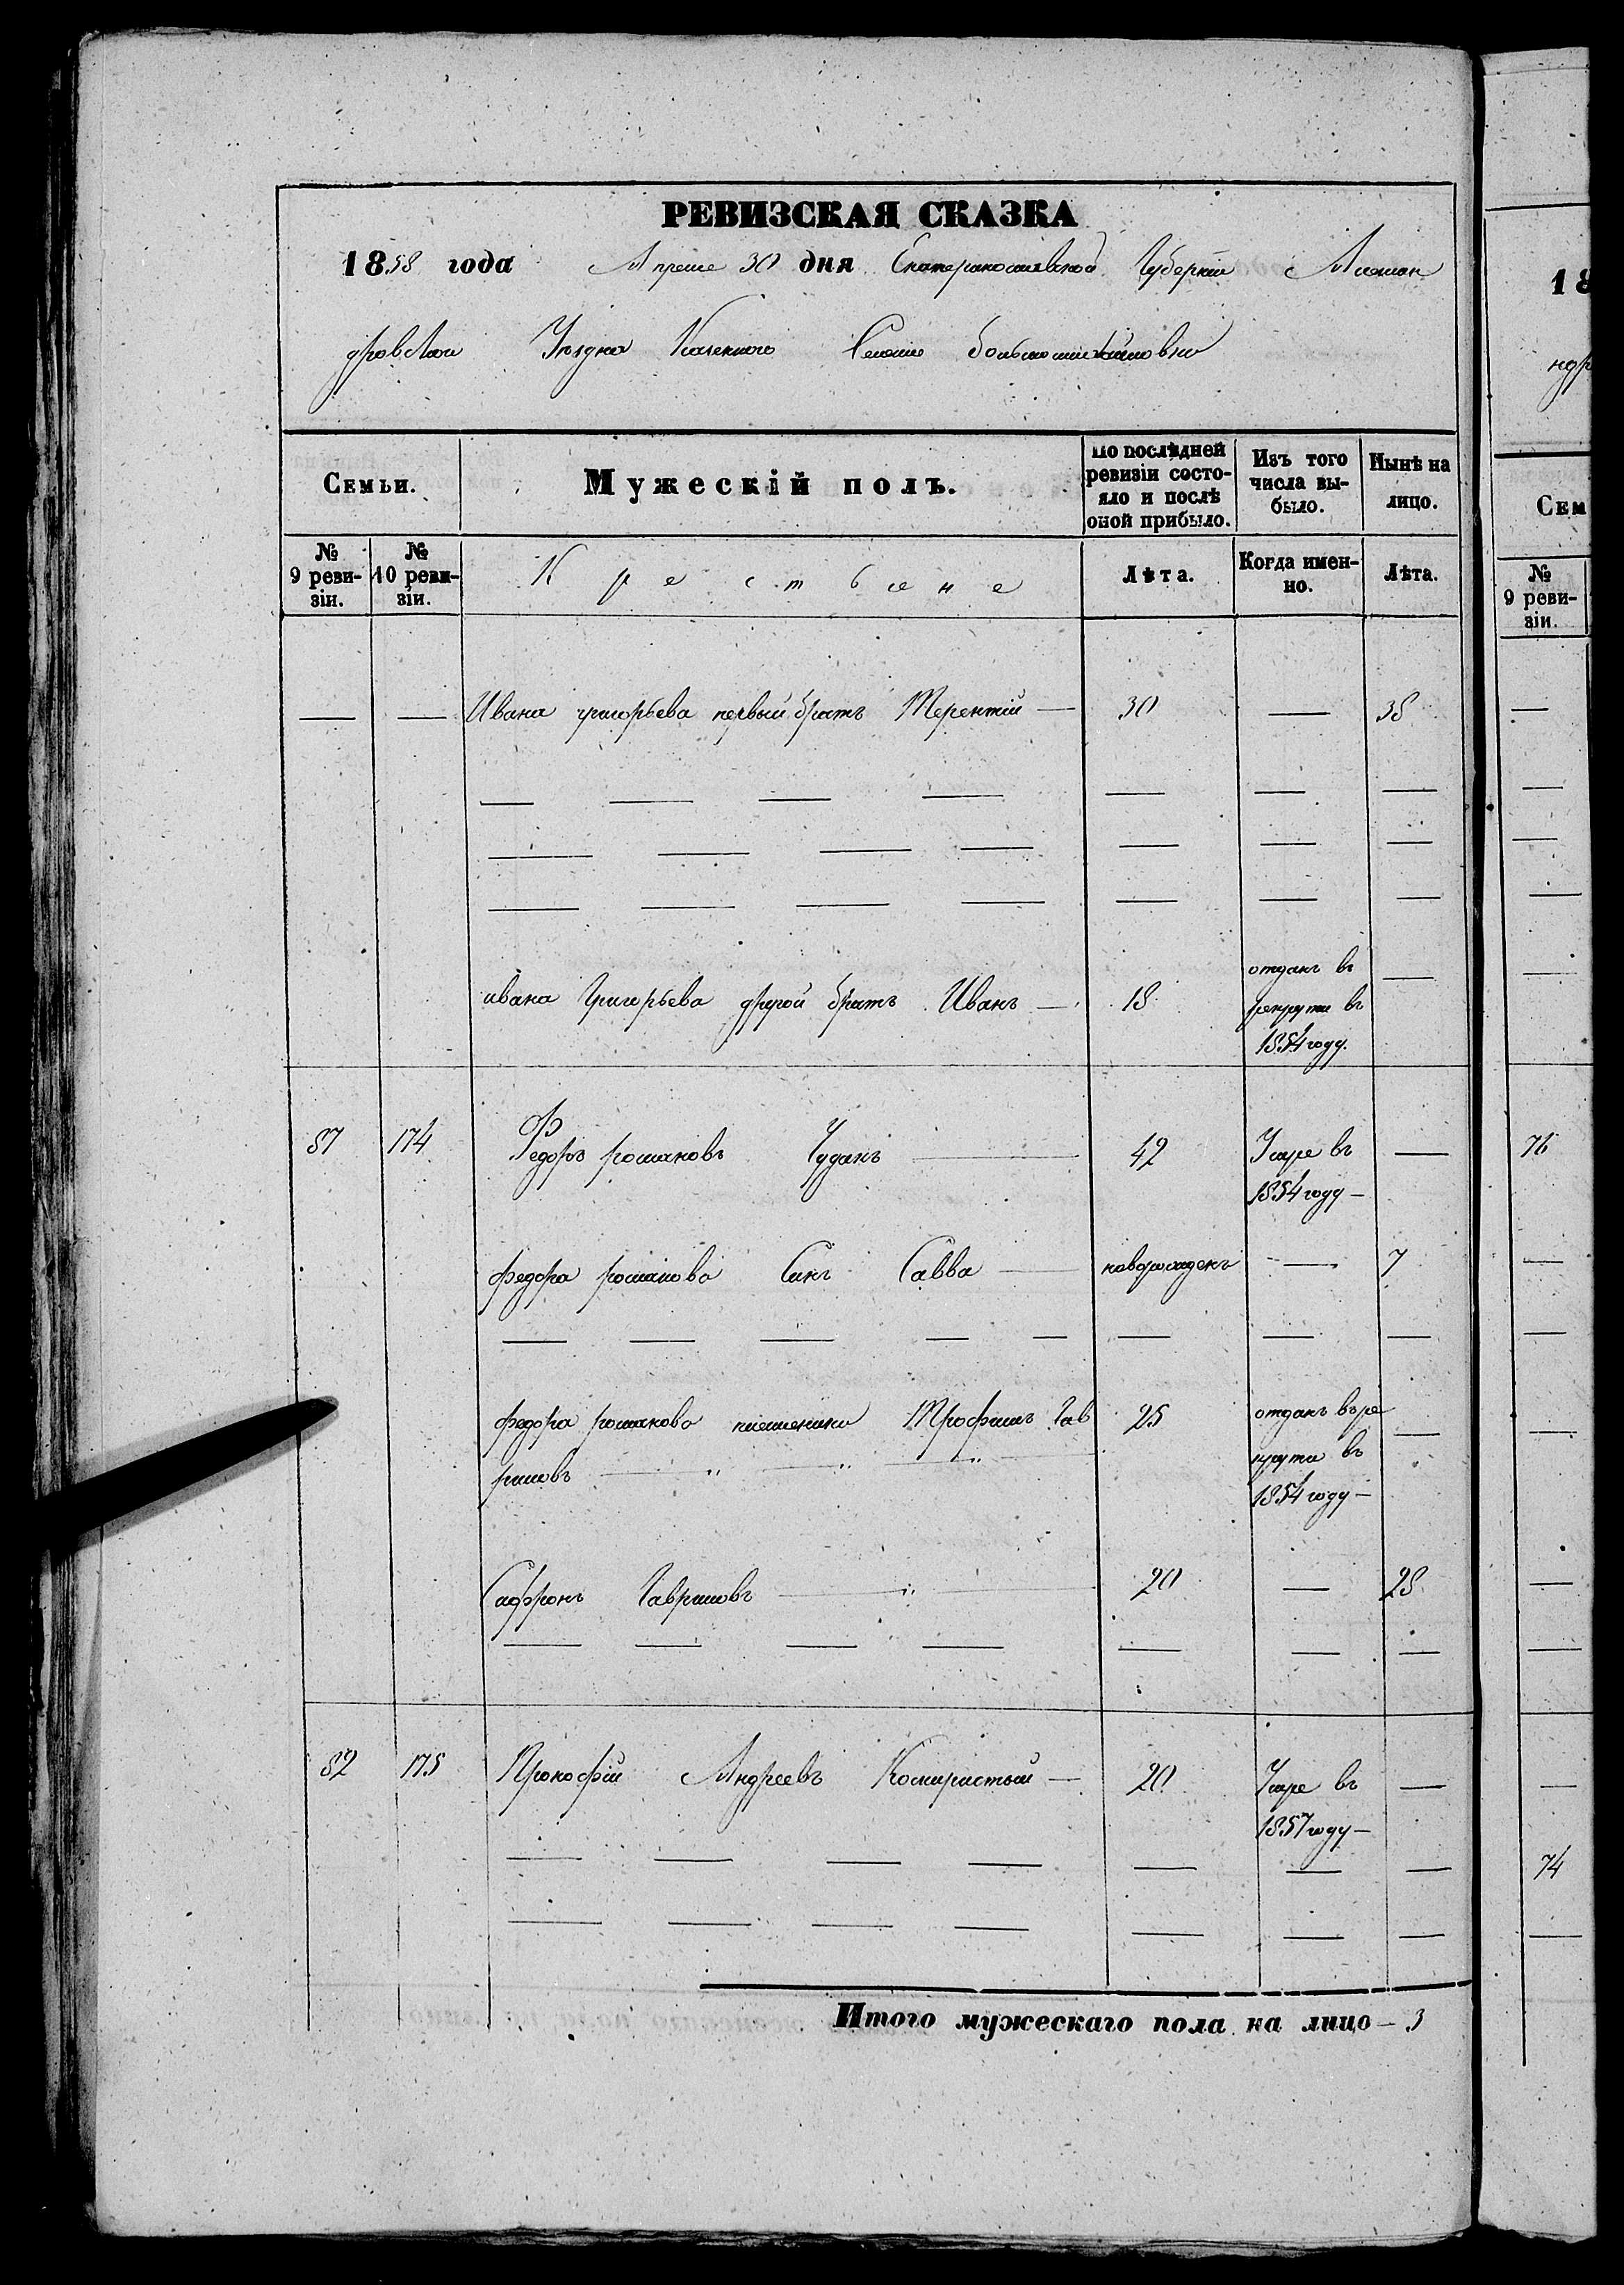 РЕВИЗСКАЯ СКАЗКА
1858 года Апреля 30 дня Екатеринославской Губернии Алексан
дровскаго Уезда Казенного Селения
18
ндр
Семьи.
Мужескій полъ.
По послѣдней ревизіи состояло и послѣ оной прибыло.
Изъ того числа выбыло.
Нынѣ на лицо.
Сем
№ 9 ревизіи.
№ 10 ревизіи.
Крестьяне
Лѣта.
Когда именно.
Лѣта.
№ 9 ревизіи.
Ивана григорьева первый братъ Терентій — 30 — 38
ивана Григорьева другой братъ Иванъ — 18 отданъ въ
рекруты въ
1854 году.
87 174 Федоръ романовъ Чуданъ 42 Умре въ — 76
1854 году —
федора романова Синъ Савва новорожденъ — 7
федора романова племеники Трофимъ Гав 25 отданъ въ ре
риловъ круты въ
1854 году —
Сафронъ Гавриловъ 20 — 28
82 175 Прокофій Андреевъ 20 Умре въ —
1857 году —
74
Итого мужескаго пола на лицо — 3